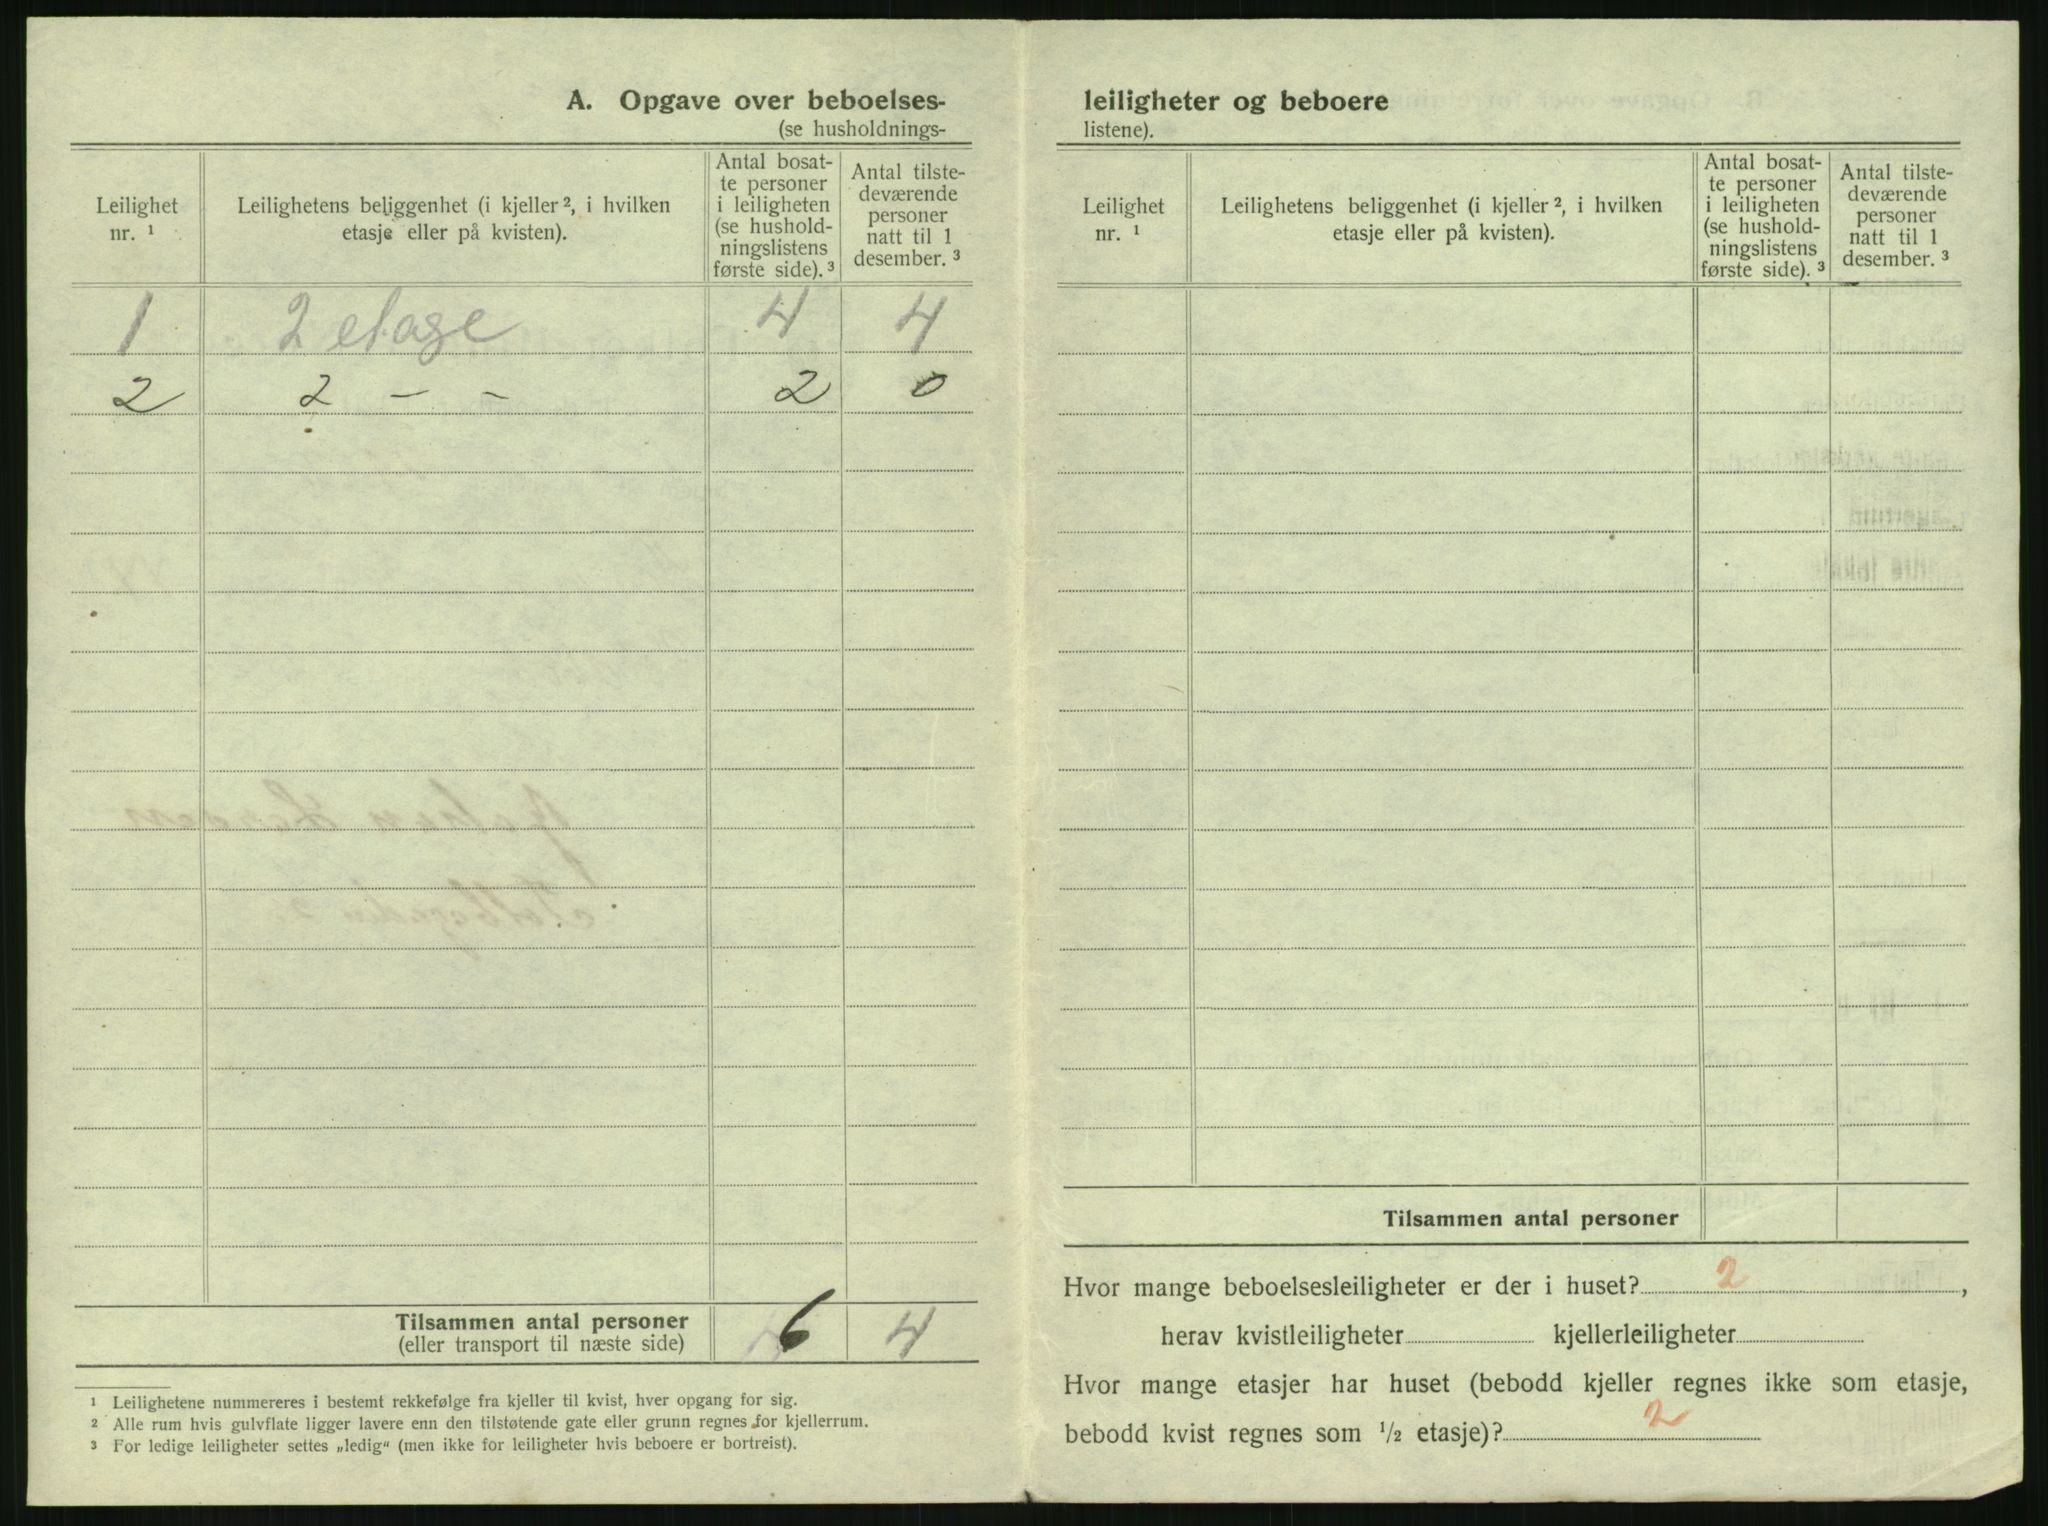 A. Opgave over beboelses-
(se husholdnings-
Leilighet nr. ¹
Leilighetens beliggenhet (i kjeller ², i hvilken etasje eller på kvisten).
Antal bosat-
te personer
i leiligheten
(se hushold-
ningslistens
første side). ³
Antal tilste-
deværende
personer
natt til 1
desember. ³
1 2 etage 4 4
2 2 - - 2 0
Tilsammen antal personer 6 4
(eller transport til næste side)
¹ Leilighetene nummereres i bestemt rekkefølge fra kjeller til kvist, hver opgang for sig.
² Alle rum hvis gulvflate ligger lavere enn den tilstøtende gate eller grunn regnes for kjellerrum.
³ For ledige leiligheter settes „ledig" (men ikke for leiligheter hvis beboere er bortreist).
leiligheter og beboere
listene).
Leilighet nr. ¹
Leilighetens beliggenhet (i kjeller ², i hvilken etasje eller på kvisten).
Antal bosat-
te personer
i leiligheten
(se hushold-
ningslistens
første side). ³
Antal tilste-
deværende
personer
natt til 1
desember. ³
Tilsammen antal personer
Hvor mange beboelsesleiligheter er der i huset? 2 ,
herav kvistleiligheter kjellerleiligheter
Hvor mange etasjer har huset (bebodd kjeller regnes ikke som etasje,
bebodd kvist regnes som ½ etasje)? 2